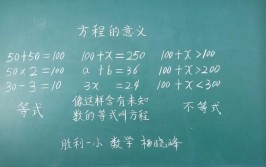 方程的意义
50+50=100 100+x=250 100+x>100
50×2=100 a+b=36 100+x>200
30-3=10 3x=2.4 100+x<300
等式 像这样含有未知数的等式叫方程 不等式
胜利一小 数学 杨晓峰